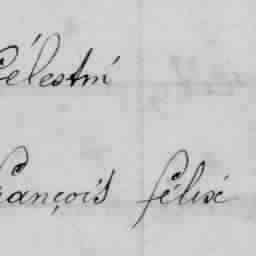 Célestin
François félix